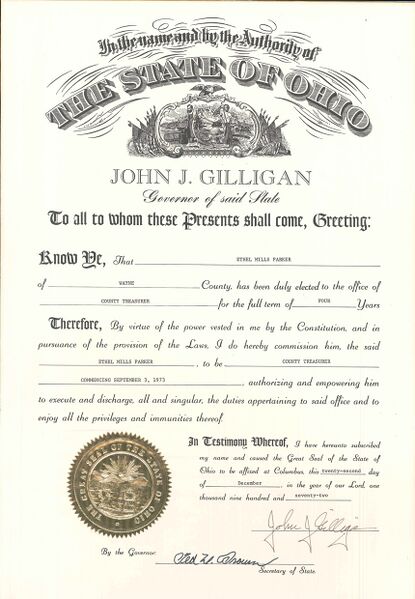 In the name and by the Authority of
THE STATE OF OHIO
JOHN J. GILLIGAN
Governor of said State
To all to whom these Presents shall come, Greeting:
Know Ye, That ETHEL MILLS PARKER
of WAYNE County, has been duly elected to the office of
COUNTY TREASURER for the full term of FOUR Years
Therefore, By virtue of the power vested in me by the Constitution, and in
pursuance of the provision of the Laws, I do hereby commission him, the said
ETHEL MILLS PARKER, to be COUNTY TREASURER
COMMENCING SEPTEMBER 3, 1973, authorizing and empowering him
to execute and discharge, all and singular, the duties appertaining to said office and to
enjoy all the privileges and immunities thereof.
In Testimony Whereof, I have hereunto subscribed
my name and caused the Great Seal of the State of
Ohio to be affixed at Columbus, this twenty-second day
of December, in the year of our Lord, one
thousand nine hundred and seventy-two
THE GREAT SEAL OF THE STATE OF OHIO
John J. Gilligan
By the Governor:
Ted W. Brown
Secretary of State.